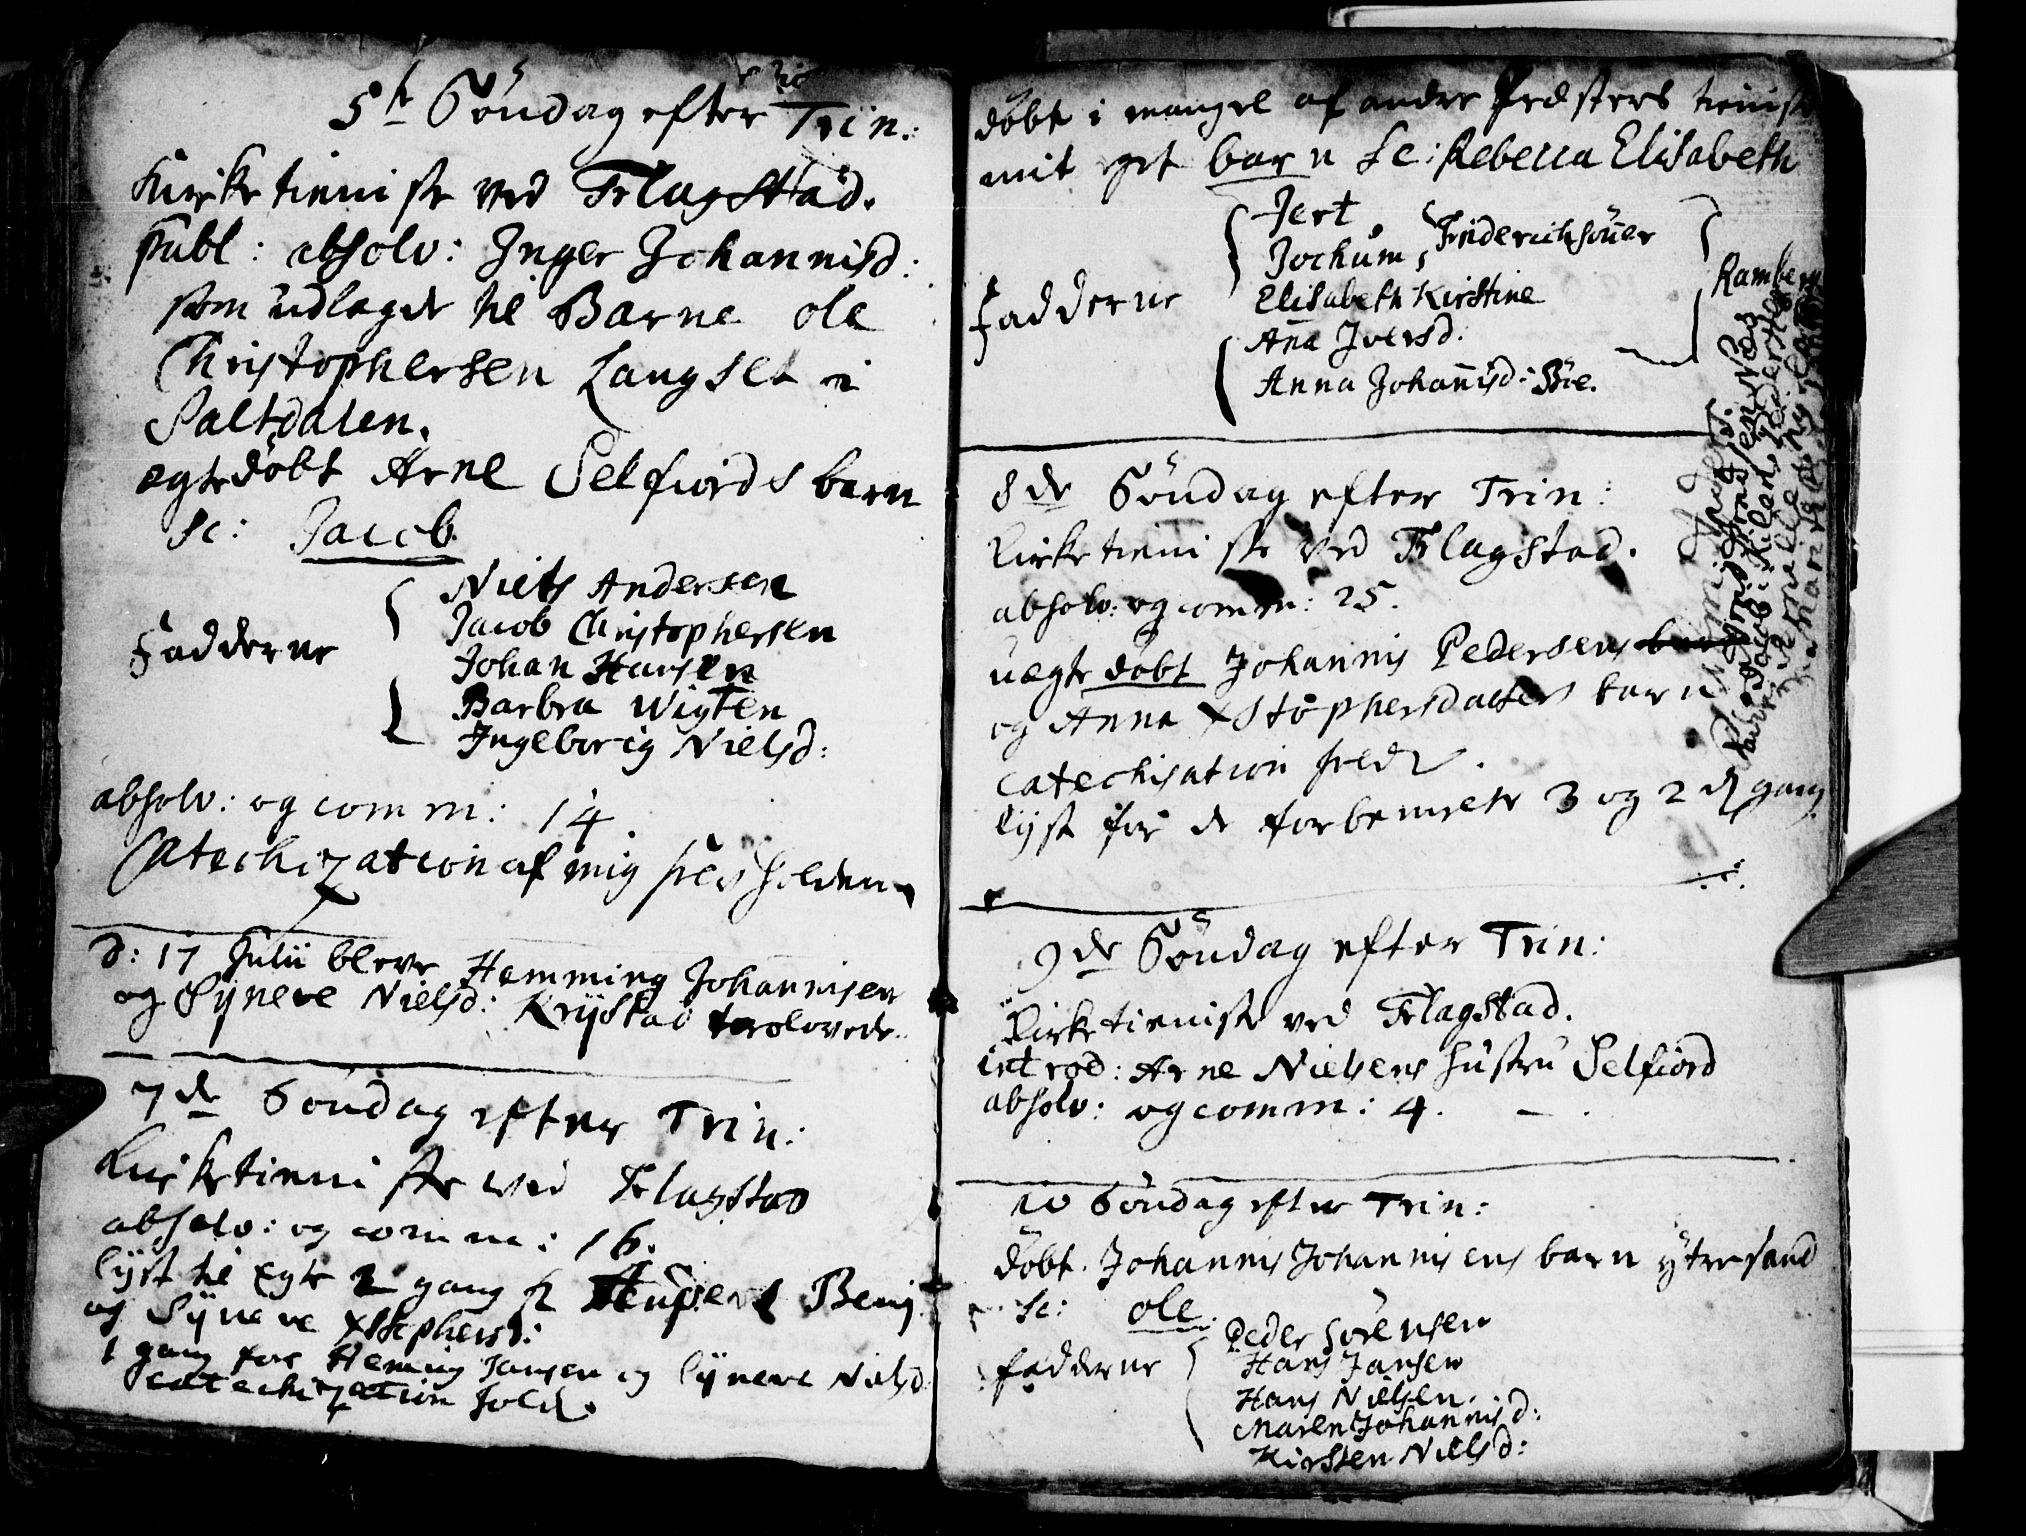 5te Söndag efter Trin:
Kirke tieniste ved Flagstad.
publ: absolv: Inger Johannisd:
som udlagde til Barne ole
Christophersen Langset i
Saltdalen.
ægte döbt Arne Selfiords barn
sc: Jacob
Fadderne
Niels Andersen
Jacob Christophersen
Johan Hansen
Barbra Wigten
Ingeborig Nielsd:
absolv: og comm: 14
Catechization af mig holden
D: 17 Julii bleve Hemming Johannisen
og Syneve Nielsd: Krystad trolovede.
7de Söndag efter Trin:
Kirketieniste ved Flagstad
absolv: og comm: 16.
lyst til Egte 2 gang
og Syneve xstophersd:
1 gang for Heming Jansen og Syneve Nielsd
catechization hold.
döbt i mangel af andre Præsters tienist
mit eget barn sc: Rebecca Elisabeth
Fadderne
Jert
Jochum, Friderichsöner
Elisabeth Kirstine
Ramberg
Ane Iversd:
Anna Johannisd: Böe.
8de Söndag efter Trin:
Kirke tieniste ved Flagstad.
absolv: og comm: 25.
uægte döbt Johannis Pedersens
og Anna xstophersdatters barn
catechisation holdt.
lyst for de forbemelte 3 og 2de gang
9de Söndag efter Trin:
Kirke tieniste ved Flagstad.
introd: Arne Nielsens hustru Selfiord
absolv: og comm: 4.
10 Söndag efter Trin:
döbt Johannis Johannisens barn ytresand
sc: ole
fadderne
Peder Sörensen
Hans Jansen
Hans Nielsen.
Maren Johannisd:
Kirsten Nielsd: